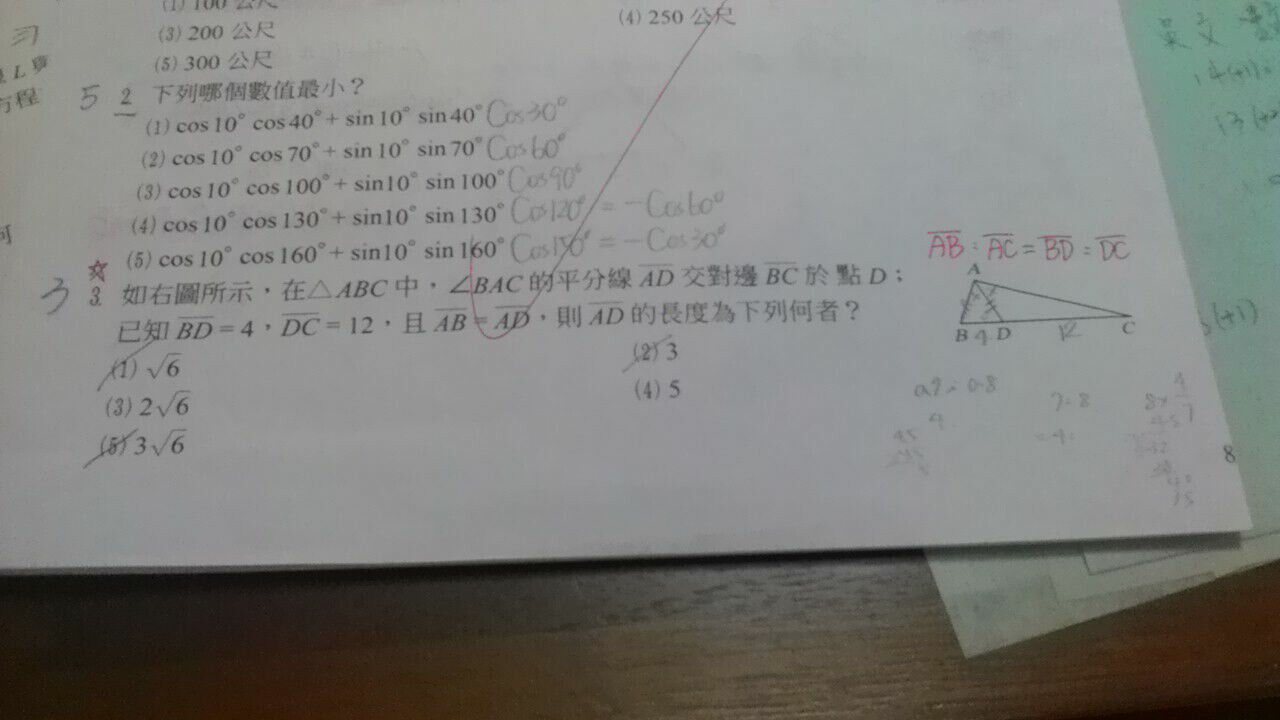 (1) 100 公尺
(3) 200 公尺
(4) 250 公尺
(5) 300 公尺
5 2. 下列哪個數值最小？
(1) cos 10° cos 40° + sin 10° sin 40° Cos30°
(2) cos 10° cos 70° + sin 10° sin 70° Cos60°
(3) cos 10° cos 100° + sin10° sin 100° Cos90°
(4) cos 10° cos 130° + sin10° sin 130° Cos120° = -Cos60°
(5) cos 10° cos 160° + sin10° sin 160° Cos150° = -Cos30°
☆
3 3. 如右圖所示，在△ABC 中，∠BAC 的平分線 A̅D̅ 交對邊 B̅C̅ 於 點 D；
已知 B̅D̅ = 4，D̅C̅ = 12，且 A̅B̅ = A̅D̅，則 A̅D̅ 的長度為下列何者？
(1) √6
(2) 3
(3) 2√6
(4) 5
(5) 3√6
A̅B̅ : A̅C̅ = B̅D̅ : D̅C̅
A
B 4 D 12 C
8
習
方程
英文 數